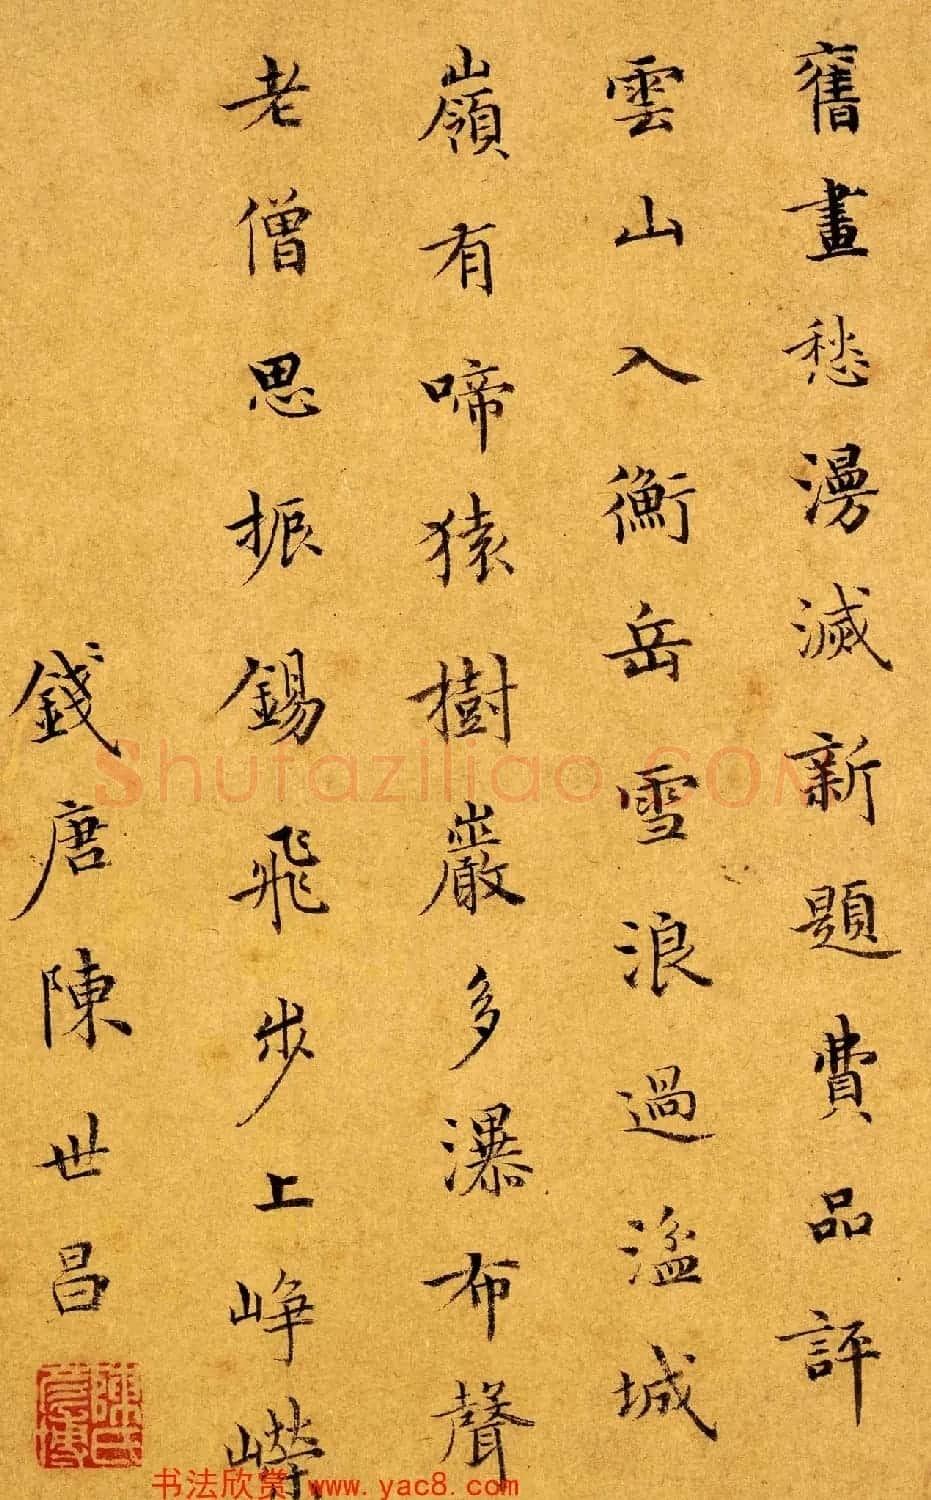 舊畫愁漫滅新題費品評
雲山入衡岳雪浪過湓城
嶺有啼猿樹巖多瀑布聲
老僧思振錫飛步上崢嶸
錢唐陳世昌
Shufaziliao.COM
书法欣赏 www.yac8.com